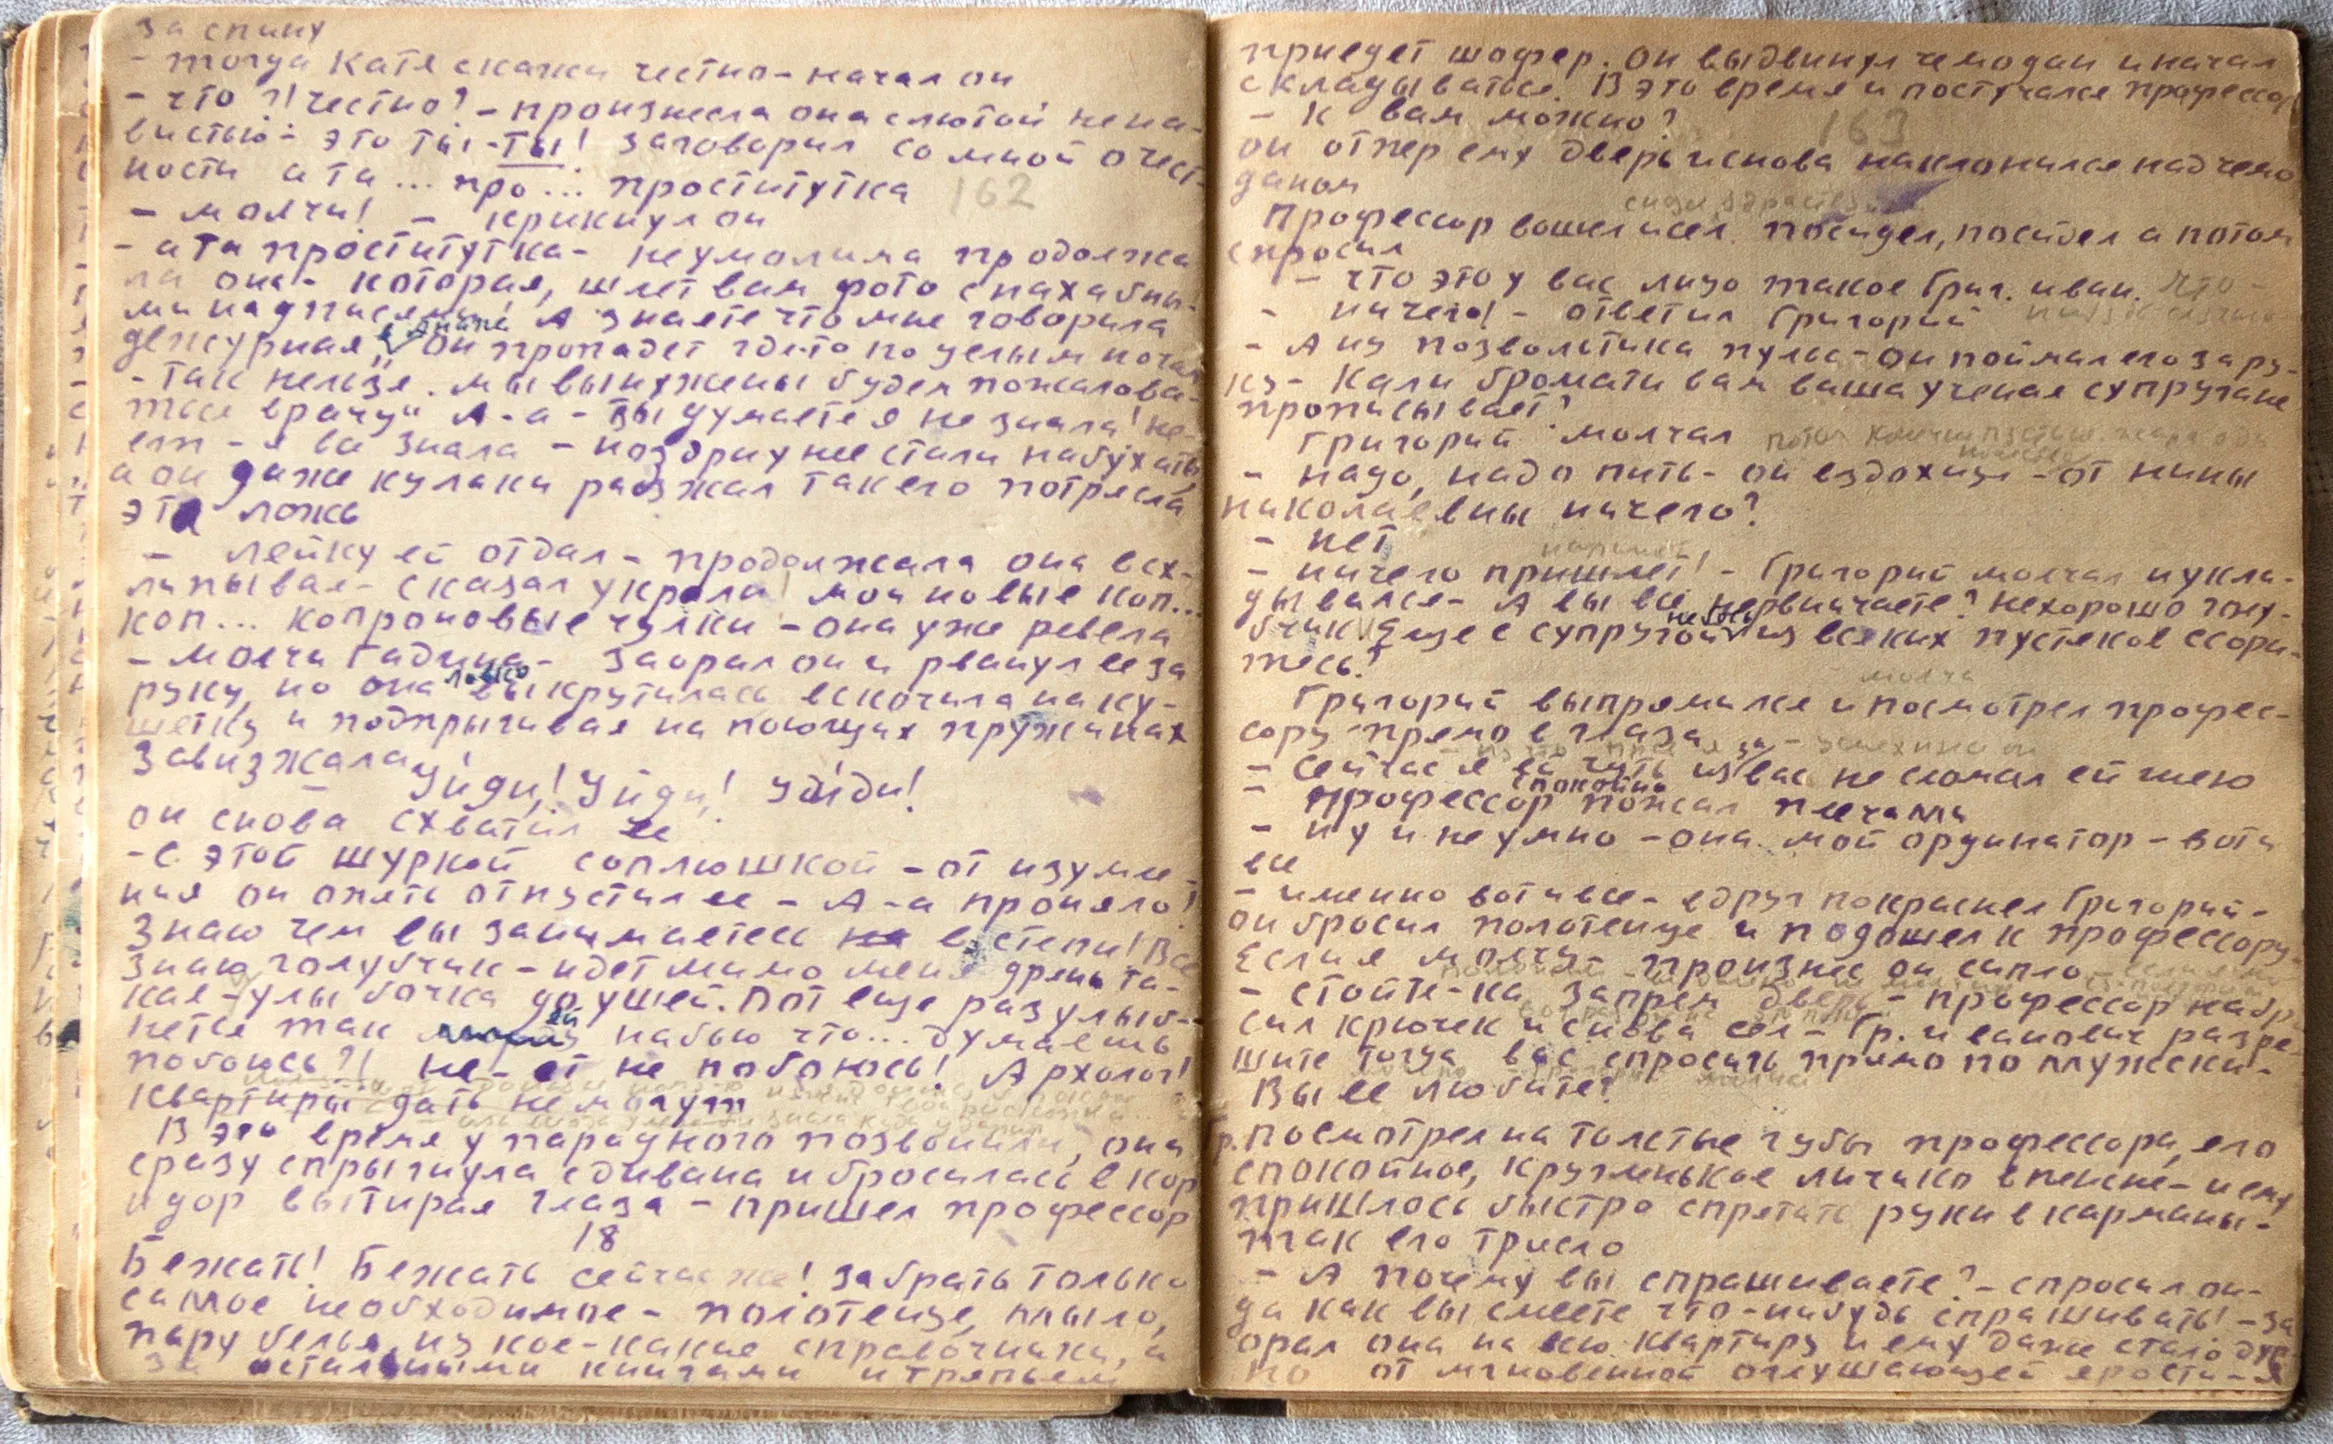 за спину
- тогда Катя скажи честно - начал он
- что?! честно? - произнесла она с лютой нена-
вистью - это ты - ты! заговорил со мной о чест-
ности а та ... про... проститутка
162
- молчи! - крикнул он
- а та проститутка - неумолима продолжа
ла она - которая, шлет вам фото с похабны-
ми надписями! А знаете что мне говорила
дежурная, „он пропадет где-то по целым ночам
- так нельзя. мы вынуждены будем пожалова-
ться врачу" А-а - ты думаете я не знала! не-
ет - я все знала - ноздри у нее стали набухать
а он даже кулаки разжал так его потрясла
эта ложь
- лейку ей отдал - продолжала она всх-
липывая - сказал украла! мои новые кап...
кап... капроновые чулки - она уже ревела
- молчи гадина - заорал он и рванул ее за
руку, но она ловко выкрутилась вскочила на ку-
шетку и подпрыгивая на поющих пружинах
завизжала
Уйди! Уйди! Уйди!
он снова схватил ее
- с этой шуркой соплюшкой - от изумле-
ния он опять отпустил ее - А-а проняло!
Знаю чем вы занимаетесь в степи! Все
знаю голубчик - идет мимо меня дрянь та-
кая - улыбочка до ушей. Вот еще раз улыб-
нется так ей набью что... думаешь
побоюсь?! не-ет не побоюсь! Архолог!
квартиры дать не могут
В это время у парадного позвонили, она
сразу спрыгнула с дивана и бросилась в кор
идор вытирая глаза - пришел профессор
18
Бежать! Бежать сейчас же! забрать только
самое необходимое - полотенце, мыло,
пару белья, из кое-какие справочники, а
за остальными книгами и тряпьем
приедет шофер. Он выдвинул чемодан и начал
складываться. В это время и постучался профессор
- к вам можно?
163
он отпер ему дверь и снова наклонился над чемо
даном
Профессор вошел и сел. посидел, посидел а потом
спросил
- что это у вас лицо такое Григ. иван.
- ничего! - ответил Григорий
- А ну позвольте-ка пульс - он поймал его за ру-
ку - Кали бромати вам ваша ученая супруга не
прописывает?
Григорий молчал
- надо, надо пить - он вздохнул - от нины
николаевны ничего?
- нет
- ничего пришлет! - Григорий молчал и укла-
дывался - А вы все нервничаете? нехорошо голу-
бчик! Еще с супругой небось из всяких пустяков ссори-
тесь?
молча
Григорий выпрямился и посмотрел профес-
сору прямо в глаза
- сейчас я чуть из за вас не сломал ей шею
- Профессор спокойно пожал плечами
- ну и не умно - она мой ординатор - вот и
все
- именно вот и все - вдруг покраснел Григорий -
он бросил полотенце и подошел к профессору -
Если я молчу - произнес он сипло
- стойте-ка запрем дверь - профессор набро
сил крючек и снова сел - Гр. иванович разре-
шите тогда вас спросить прямо по мужски -
Вы ее любите?
Гр. посмотрел на толстые губы профессора, его
спокойное, кругленькое личико в пенсне - и ему
пришлось быстро спрятать руки в карманы -
так его трясло
- А почему вы спрашиваете? - спросил он -
да как вы смеете что-нибудь спрашивать! - за
орал она на всю квартиру и ему даже стало дур
но от мгновенной оглушающей ярости - я